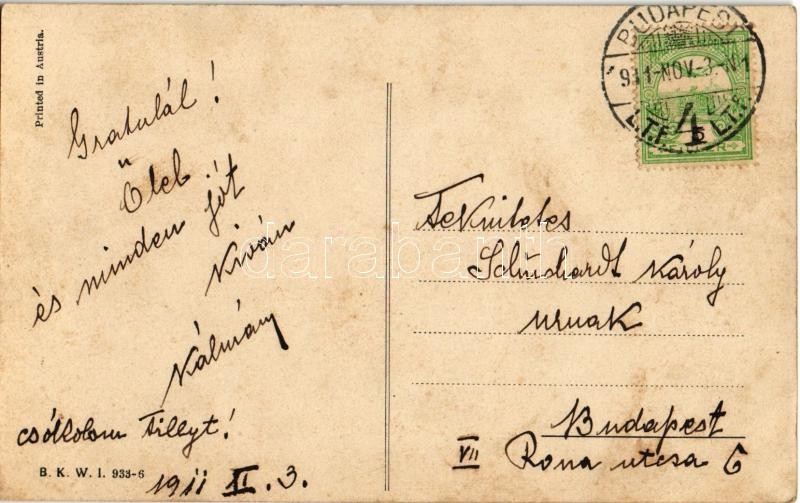 Printed in Austria.
Gratulál!
Ölel
és minden jót
kiván
Kálmán
csókolom Tillyt!
1911 II. 3.
B. K. W. I. 933-6
BUDAPEST
911-NOV.-3
4
5
Tekintetes
Károly
urnak
Budapest
VII
Rona utcsa 6
darabanth